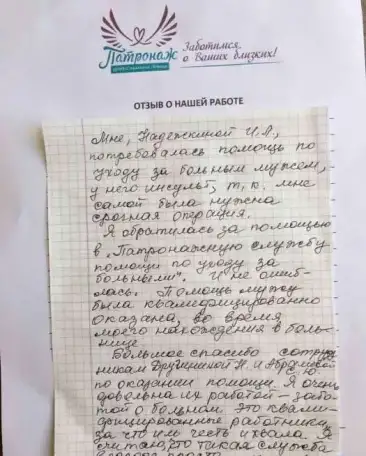 Патронаж
Заботимся
о Ваших близких!
ОТЗЫВ О НАШЕЙ РАБОТЕ
Мне, Надежкиной И.А.,
потребовалась помощь по
уходу за больным мужем,
у него инсульт, т.к. мне
самой была нужна
срочная операция.
Я обратилась за помощью
в "Патронажную службу
помощи по уходу за
больными". И не ошиб-
лась. Помощь мужу
была квалифицированно
оказана, во время
моего нахождения в боль-
нице.
Большое спасибо сотруд
никам Дружининой Н. и
С.Ю.
по оказании помощи. Я очень
довольна их работой – забо-
той о больном. Это квали-
фицированные работники,
за что им честь и хвала. Я
считаю, что такая служба